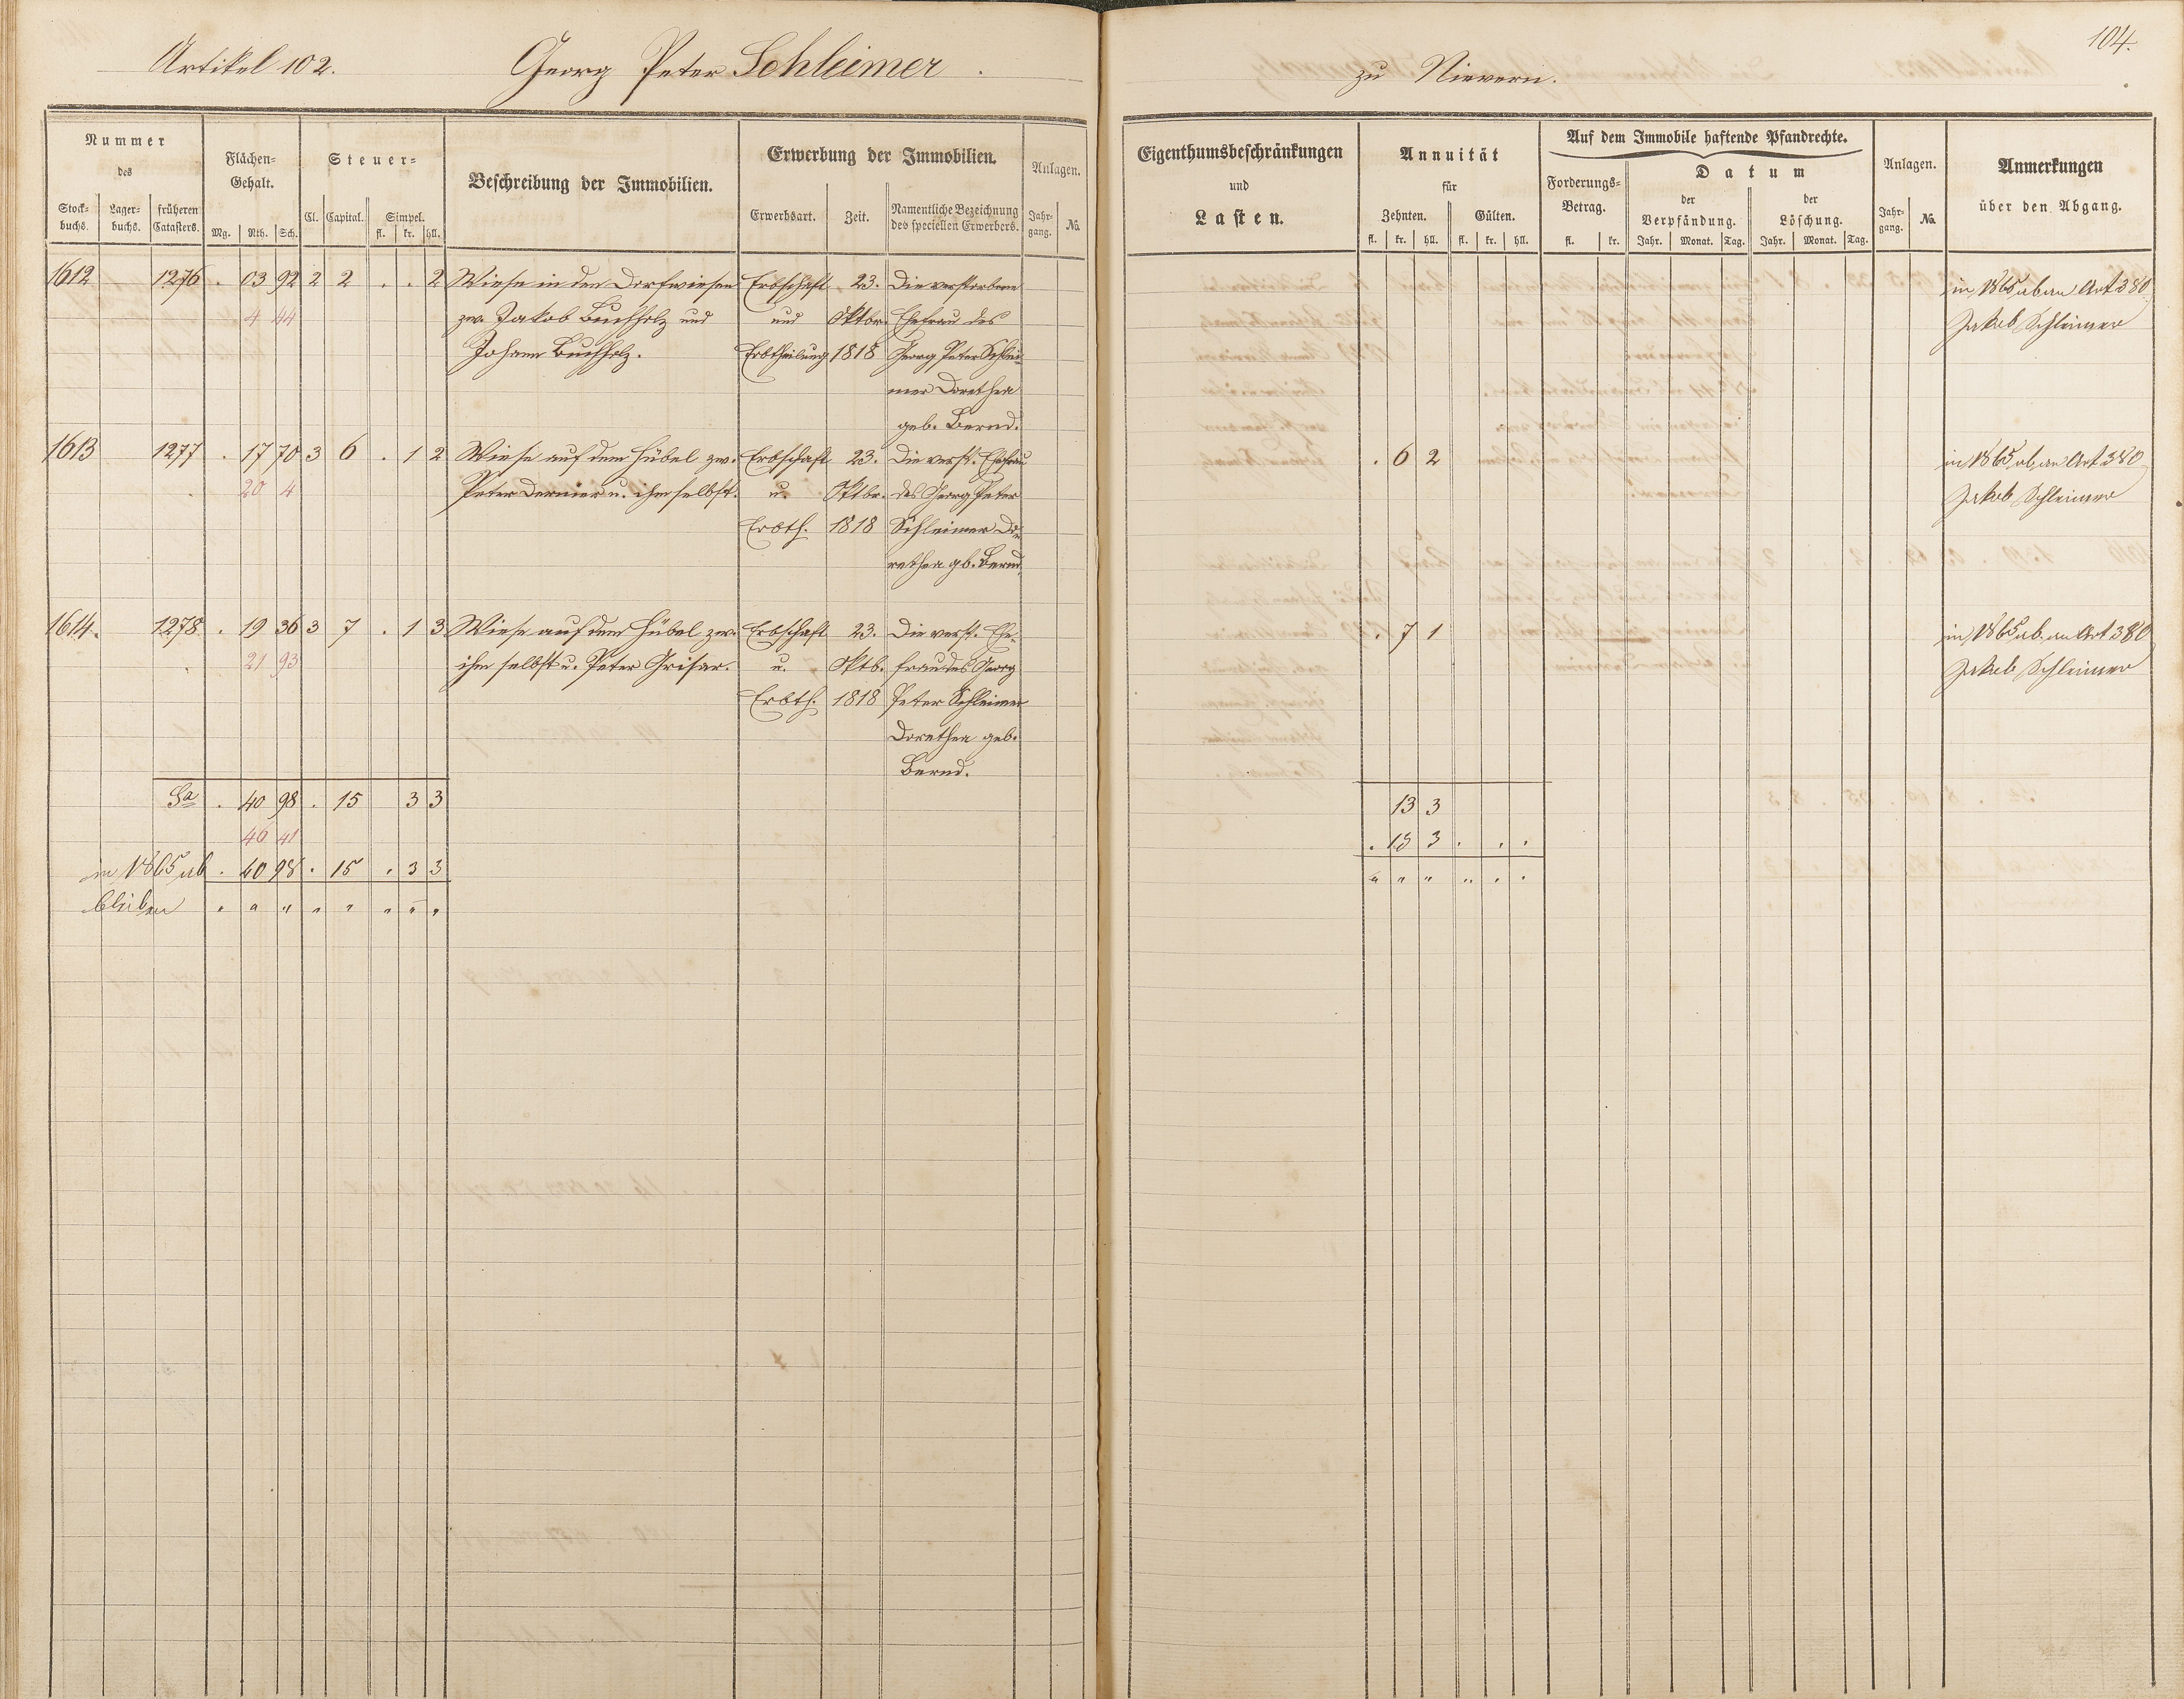 Artikel 102. Georg Peter Schleimer. zu Nievern. 104.
Nummer des
Stock-buchs. Lager-buchs. früheren Catasters.
Flächen-Gehalt.
Mg. Rth. Sch.
Steuer-
Cl. Capital. Simpel.
fl. kr. hll.
Beschreibung der Immobilien.
Erwerbung der Immobilien.
Erwerbsart. Zeit. Namentliche Bezeichnung des speciellen Erwerbers.
Anlagen.
Jahr-gang. No.
Eigenthumsbeschränkungen
und
Lasten.
Annuität
für
Zehnten. Gülten.
fl. kr. hll. fl. kr. hll.
Auf dem Immobile haftende Pfandrechte.
Forderungs-Betrag.
fl. kr.
Datum
der Verpfändung. der Löschung.
Jahr. Monat. Tag. Jahr. Monat. Tag.
Anlagen.
Jahr-gang. No.
Anmerkungen
über den Abgang.
1612 1276 . 03 92 2 2 . . 2 Wiese in den Dorfwiesen Erbschaft 23. Die verstorbene in 1865 ab an Art 380
4 44 zw. Jakob Buchholz und und Oktbr. Ehefrau des Jakob Schleimer
Johann Buchholz. Erbtheilung 1818 Georg Peter Schlei-
mer Dorethea
geb. Bernd.
1613 1277 . 17 70 3 6 . 1 2 Wiese auf dem Hübel zw. Erbschaft 23. Die verst. Ehefrau . 6 2 in 1865 ab an Art 380
20 4 Peter Dernier u. ihm selbst. u. Oktbr. des Georg Peter Jakob Schleimer
Erbth. 1818 Schleimer Do-
rethea gb. Bernd.
1614. 1278. . 19 36 3 7 . 1 3 Wiese auf dem Hübel zw. Erbschaft 23. Die verst. Ehe- . 7 1 in 1865 ab an Art 380
21 93 ihm selbst u. Peter Grisar. u. Oktb. frau des Georg Jakob Schleimer
Erbth. 1818 Peter Schleimer
Dorethea geb.
Bernd.
Sa . 40 98 . 15 3 3 13 3
46 41 . 13 3 . . .
in 1865 ab . 40 98 . 15 . 3 3 " " " " . .
bleiben " " " " " " " "